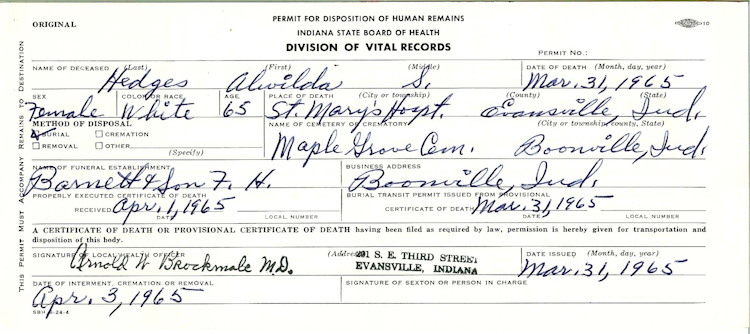 ORIGINAL
PERMIT FOR DISPOSITION OF HUMAN REMAINS
INDIANA STATE BOARD OF HEALTH
DIVISION OF VITAL RECORDS
10
PERMIT NO.:
THIS PERMIT MUST ACCOMPANY REMAINS TO DESTINATION
NAME OF DECEASED (Last) (First) (Middle) DATE OF DEATH (Month, day, year)
Hedges Alwilda S. Mar. 31, 1965
SEX COLOR OR RACE AGE PLACE OF DEATH (City or township) (County) (State)
Female White 65 St. Mary's Hospt. Evansville, Ind.
METHOD OF DISPOSAL NAME OF CEMETERY OR CREMATORY (City or township, county, State)
BURIAL CREMATION
REMOVAL OTHER
(Specify)
Maple Grove Cem. Boonville, Ind.
NAME OF FUNERAL ESTABLISHMENT BUSINESS ADDRESS
Barnett & Son F. H. Boonville, Ind.
PROPERLY EXECUTED CERTIFICATE OF DEATH BURIAL TRANSIT PERMIT ISSUED FROM PROVISIONAL
RECEIVED Apr. 1, 1965 CERTIFICATE OF DEATH Mar. 31, 1965
DATE LOCAL NUMBER DATE LOCAL NUMBER
A CERTIFICATE OF DEATH OR PROVISIONAL CERTIFICATE OF DEATH having been filed as required by law, permission is hereby given for transportation and
disposition of this body.
SIGNATURE OF LOCAL HEALTH OFFICER (Address) DATE ISSUED (Month, day, year)
Arnold W Brockmole M.D. 201 S. E. THIRD STREET
EVANSVILLE, INDIANA Mar. 31, 1965
DATE OF INTERMENT, CREMATION OR REMOVAL SIGNATURE OF SEXTON OR PERSON IN CHARGE
Apr. 3, 1965
SBH 6-24-4